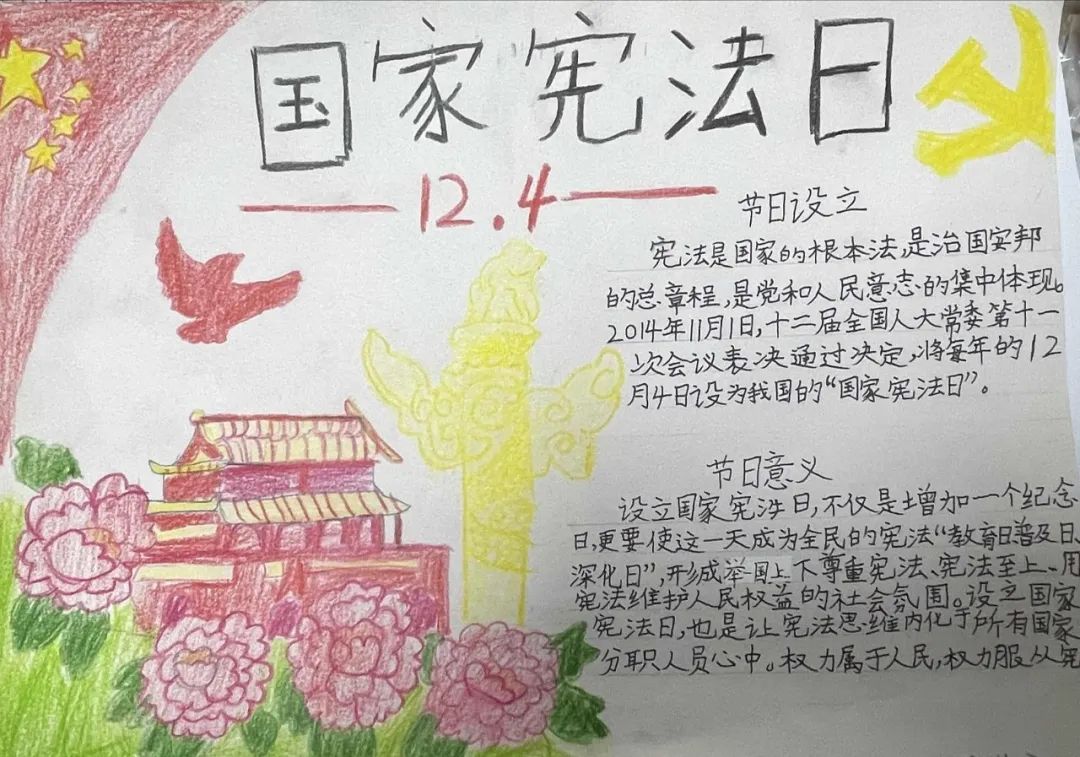 国家宪法日
12.4
节日设立
宪法是国家的根本法,是治国安邦
的总章程,是党和人民意志的集中体现。
2014年11月1日,十二届全国人大常委第十一
次会议表决通过决定,将每年的12
月4日设为我国的“国家宪法日”。
节日意义
设立国家宪法日,不仅是增加一个纪念
日,更要使这一天成为全民的宪法“教育日、普及日、
深化日”,形成举国上下尊重宪法、宪法至上、用
宪法维护人民权益的社会氛围。设立国家
宪法日,也是让宪法思维内化于所有国家
分职人员心中。权力属于人民,权力服从宪